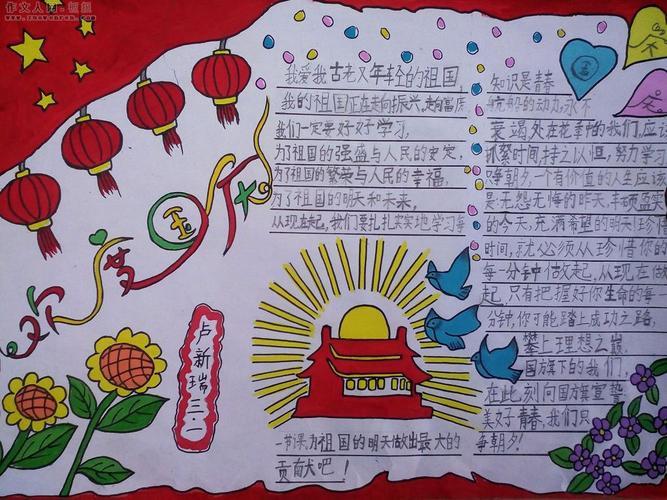 作文人网·恒组
www.zuowenren.com
欢度国庆
卢新瑞三.
我爱我古老又年轻的祖国，
我的祖国正在走向振兴，走向富庶
我们一定要好好学习，
为了祖国的强盛与人民的安定，
为了祖国的繁荣与人民的幸福，
为了祖国的明天和未来，
从现在起，我们要扎扎实实地学习每
一节课，为祖国的明天做出最大的
贡献吧！
知识是青春
航船的动力，永不
衰竭，处在花季的我们，应
抓紧时间，持之以恒，努力学习
争朝夕，一个有价值的人生应该
是：无怨无悔的昨天，丰硕盈实
的今天，充满希望的明天！珍惜
时间，就必须从珍惜你的
每一分钟做起，从现在做
起，只有把握好你生命的每一
分钟，你可能踏上成功之路，
攀上理想之巅。
国旗下的我们，
在此刻向国旗宣誓
美好青春，我们只
争朝夕！